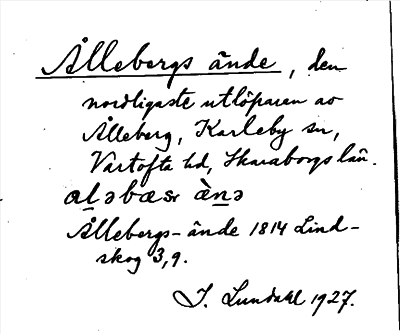 Ållebergs ände, den
nordligaste utlöparen av
Ålleberg, Karleby sn,
Vartofta hd, Skaraborgs län.
aləbæsr ènə
Ållebergs-ände 1814 Lind-
skog 3,9.
I. Lundahl 1927.